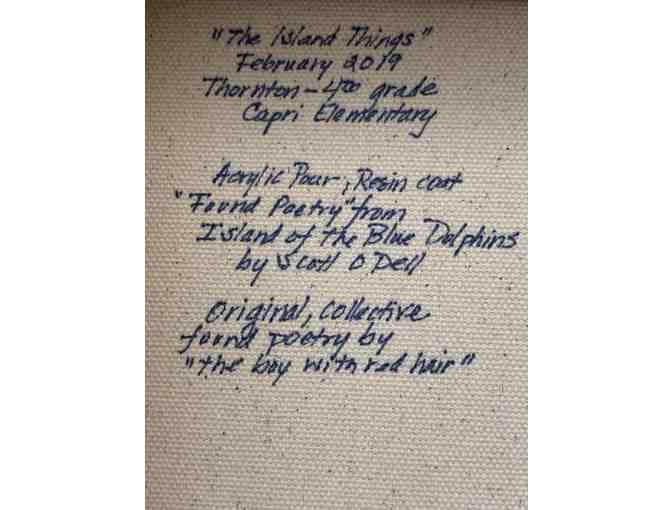 "The Island Things"
February 2019
Thornton - 4th grade
Capri Elementary
Acrylic Pour, Resin coat
"Found Poetry" from
Island of the Blue Dolphins
by Scott O Dell
Original, collective
found poetry by
"the boy with red hair"